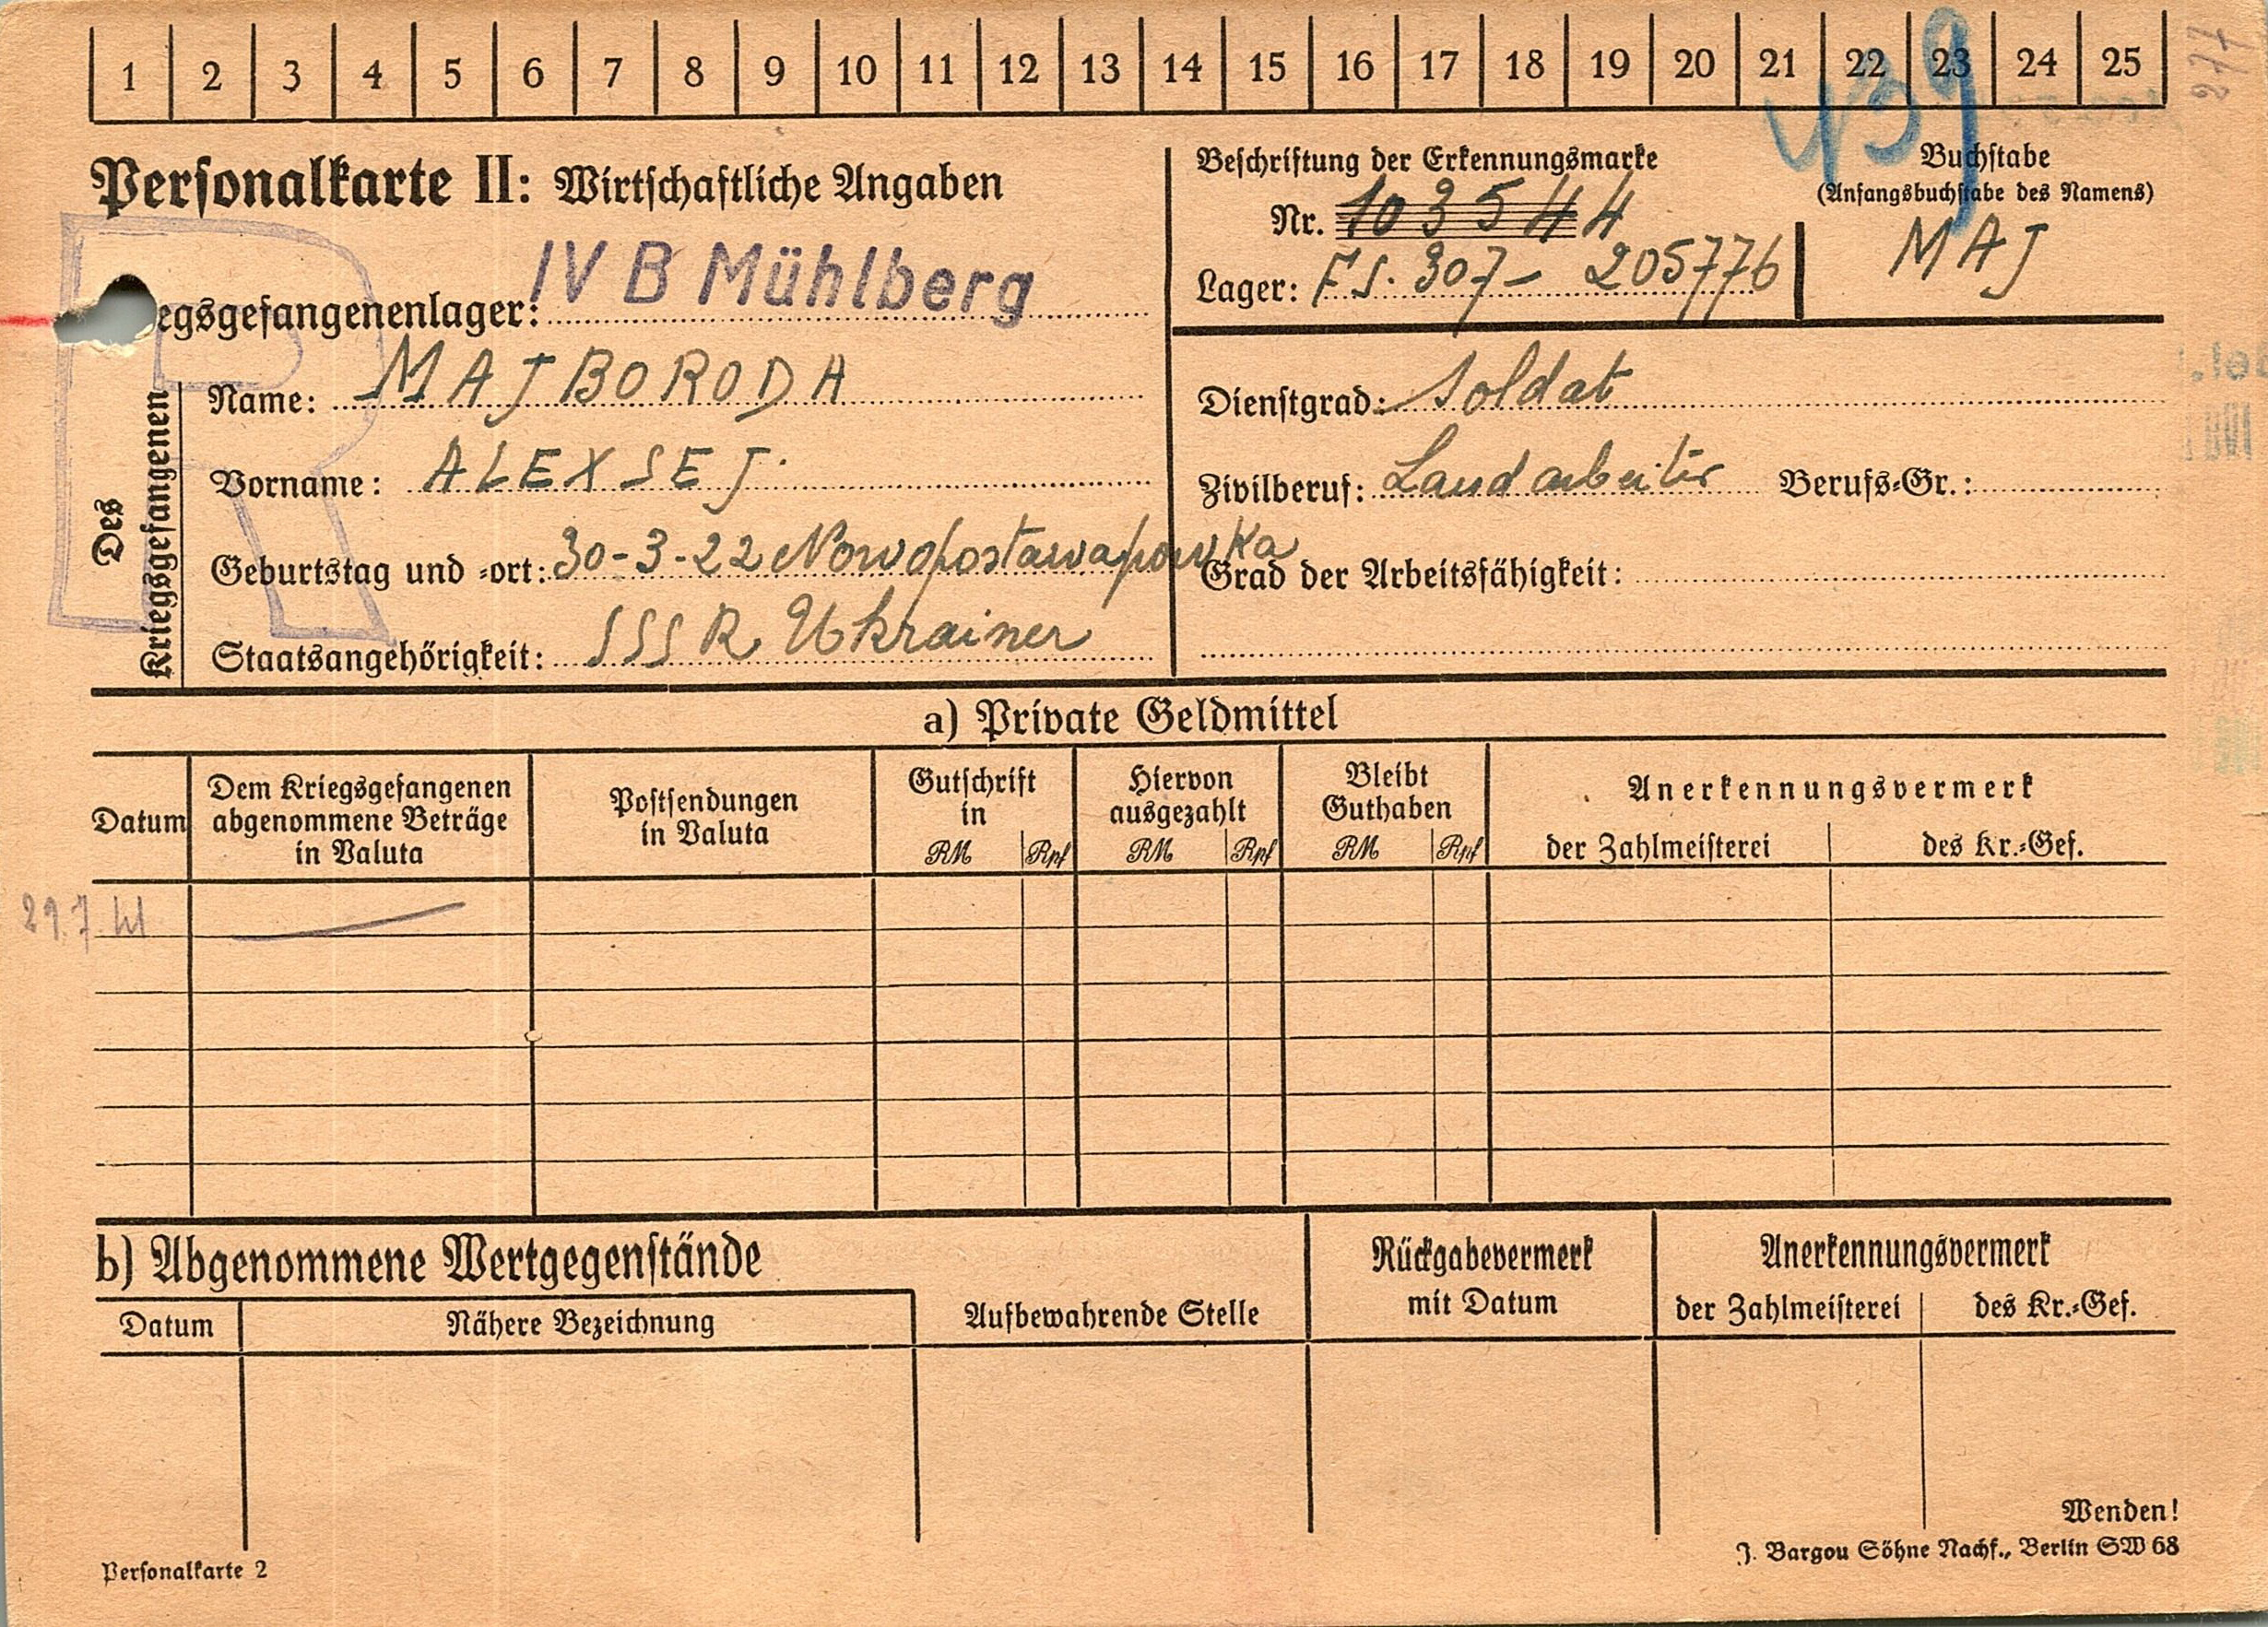 1 2 3 4 5 6 7 8 9 10 11 12 13 14 15 16 17 18 19 20 21 22 23 24 25
439
277
Personalkarte II: Wirtschaftliche Angaben
Beschriftung der Erkennungsmarke
Nr. 103544
Lager: F S. 307 - 205776
Buchstabe
(Anfangsbuchstabe des Namens)
MAJ
egsgefangenenlager: IV B Mühlberg
Des Kriegsgefangenen
Name: MAJBORODA
Vorname: ALEXSEJ
Geburtstag und -ort: 30-3-22 Nowopostawapowka
Staatsangehörigkeit: SSSR Ukrainer
Dienstgrad: Soldat
Zivilberuf: Landarbeiter Berufs-Gr.:
Grad der Arbeitsfähigkeit:
a) Private Geldmittel
Datum
Dem Kriegsgefangenen
abgenommene Beträge
in Valuta
Postsendungen
in Valuta
Gutschrift
in
RM Rpf
Hiervon
ausgezahlt
RM Rpf
Bleibt
Guthaben
RM Rpf
Anerkennungsvermerk
der Zahlmeisterei des Kr.-Gef.
29.7.41
b) Abgenommene Wertgegenstände
Datum Nähere Bezeichnung
Aufbewahrende Stelle
Rückgabevermerk
mit Datum
Anerkennungsvermerk
der Zahlmeisterei des Kr.-Gef.
Wenden!
Personalkarte 2
J. Bargou Söhne Nachf., Berlin SW 68